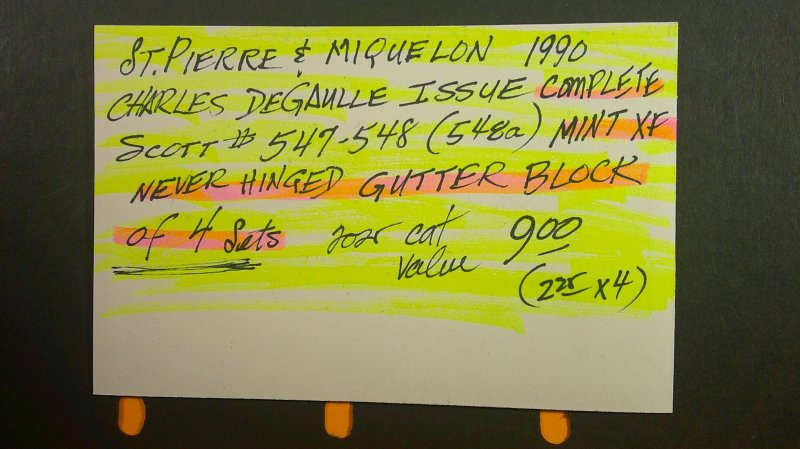 ST. PIERRE & MIQUELON 1990
CHARLES DEGAULLE ISSUE COMPLETE
SCOTT # 547-548 (548a) MINT XF
NEVER HINGED GUTTER BLOCK
of 4 Sets 2025 cat value 9.00
(2.25 x 4)